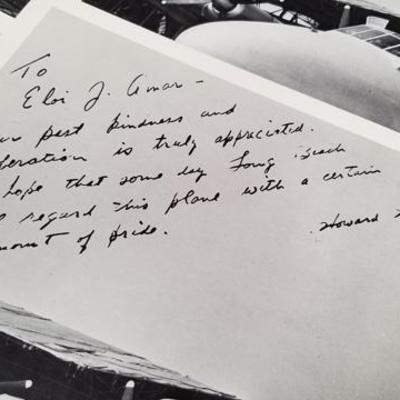 To
Eloi J. Amar -
ur past kindness and
deration is truly appreciated.
hope that some day Long Beach
regard this plane with a certain
mount of pride.
Howard